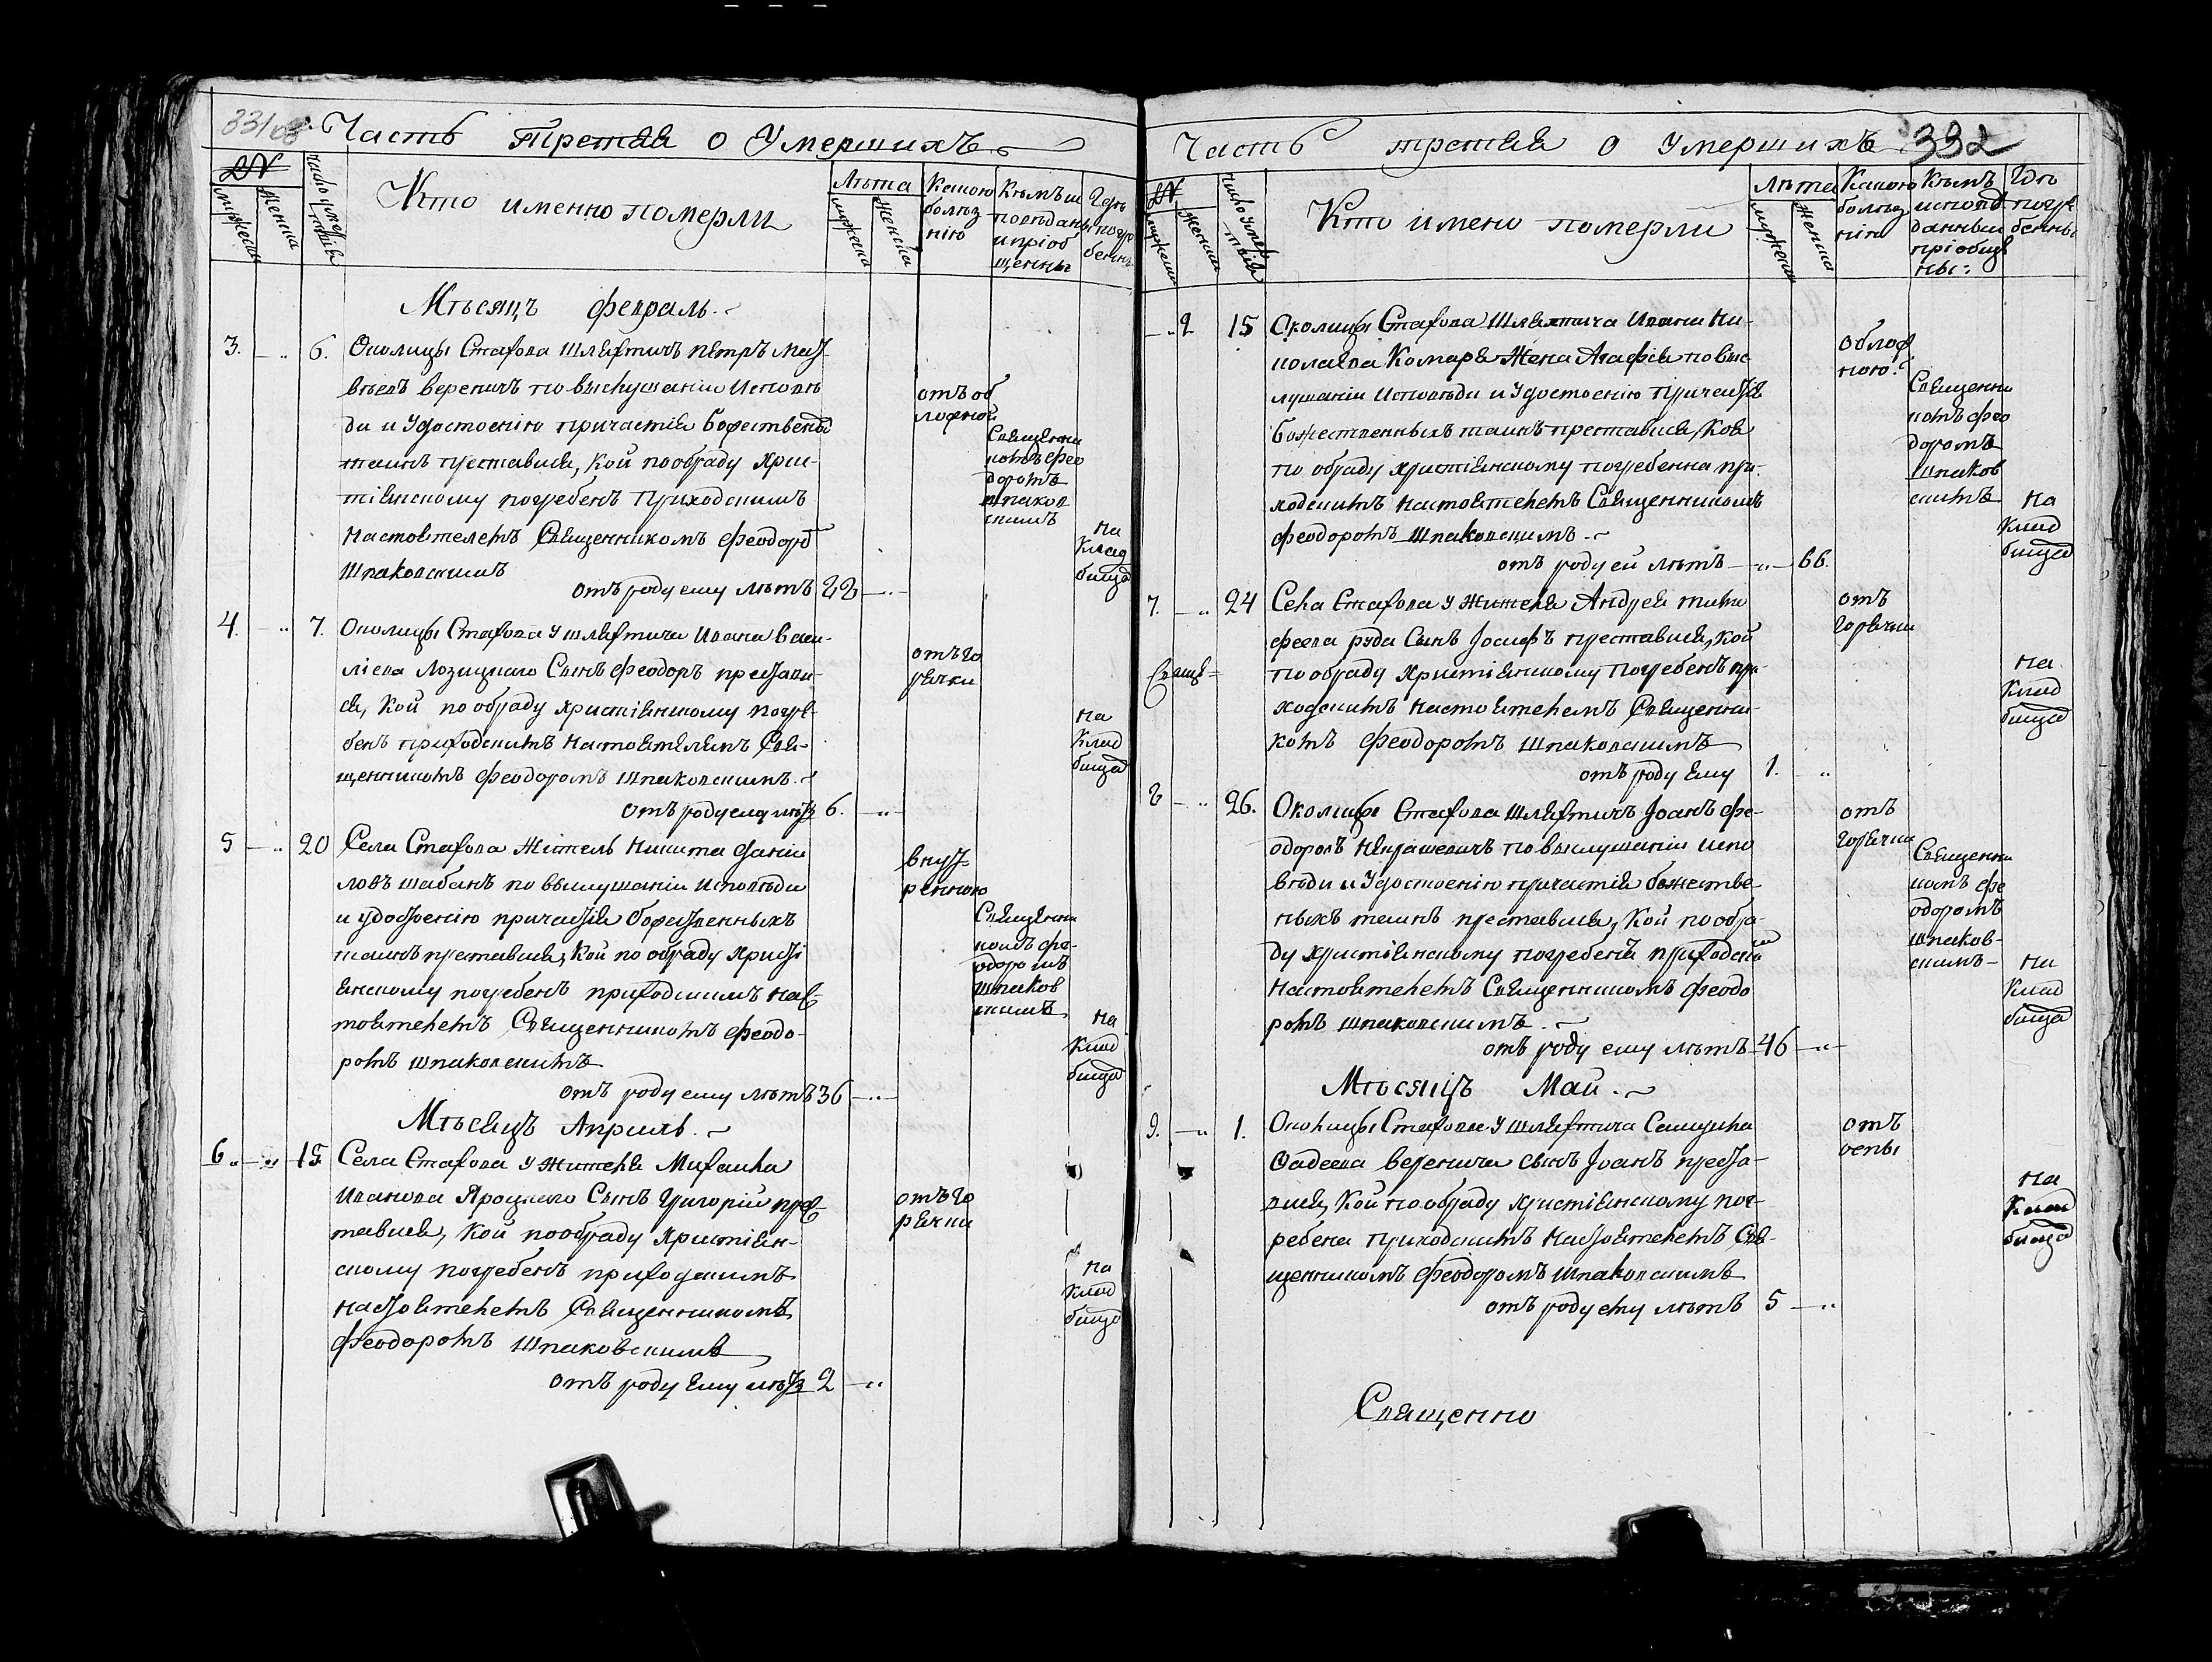 331
Часть третая о умершихъ
№
мужеска
женска
число умертвія
Кто именно померли
Лѣта
мужеска
женска
Какою болѣзнію
Кѣмъ исповѣданы и пріобщенны
Гдѣ погребенны
Мѣсяцъ февраль.
3. 6. Околицы Стахова шляхтичъ Петръ Мат-
вѣевъ Вереничъ по выслушаніи исповѣ
ди и удостоенію причастія божественны
таинъ преставися, кой по обряду хрис-
тіянскому погребенъ приходскимъ
настоятелемъ священникомъ Феодоро
Шпаковскимъ
отъ роду ему лѣтъ 22
отъ об
ложной
Священни
комъ Фео
доромъ
Шпаков
скимъ
на
Клад
бища
4. 7. Околицы Стахова у шляхтича Ивана Васи-
ліева Лозицкаго сынъ Феодоръ престави-
ся, кой по обряду христіянскому погре-
бенъ приходскимъ настоятелемъ Свя-
щенникомъ Феодоромъ Шпаковскимъ.
отъ роду ему лѣтъ 6.
отъ го
рячки
на
Клад
бища
5 20 Села Стахова житель Никита Даніи
ловъ Шабанъ по выслушаніи исповѣди
и удостоенію причастія божественныхъ
таинъ преставися, кой по обряду христі
янскому погребенъ приходскимъ нас-
тоятелемъ Священникомъ Феодо-
ромъ Шпаковскимъ
отъ роду ему лѣтъ 36
внут-
ренною
Священни
комъ Фе-
одоромъ
Шпаков
скимъ
на
Клад
бища
Мѣсяцъ Апрѣль.
6 15 Села Стахова у жителя Михаила
Иванова Яроцкаго сынъ Григорій прес-
тавися, кой по обряду христіян-
скому погребенъ приходскимъ
настоятелемъ Священникомъ
Феодоромъ Шпаковскимъ
отъ роду ему лѣтъ 2
отъ го
рячки
на
Клад
бища
Часть третая о умершихъ 332
№
мужеска
женска
число умертвія
Кто имено померли
Лѣта
мужеска
женска
Какою болѣзнію
Кѣмъ исповѣданны и пріобщены:
Гдѣ погребенны
2 15 Околицы Стахова шляхтича Ивана Ни-
колаева Комара жена Агафія по выс
лушаніи исповѣди и удостоенію причастія
божественныхъ таинъ преставися, коя
по обряду христіянскому погребенна при-
ходскимъ настоятелемъ Священникомъ
Феодоромъ Шпаковскимъ.
отъ роду ей лѣтъ 66.
облож
ною.
Священни
комъ Фео
доромъ
Шпаков
скимъ
на
Клад
бища
7. 24 Села Стахова у жителя Андрея Тимо
феева Руда сынъ Іосифъ преставися, кой
по обряду христіянскому погребенъ при-
ходскимъ настоятелемъ Священни-
комъ Феодоромъ Шпаковскимъ
отъ роду ему 1.
отъ
горячки
на
Клад
бища
Свяще=
8 26. Околицы Стахова шляхтичъ Іоанъ Фе-
одоровъ Некрашевичъ по выслушаніи испо
вѣди и удостоенію причастія божестве-
ныхъ таинъ преставися, кой по обря-
ду христіянскому погребенъ приходским
настоятелемъ Священникомъ Феодо
ромъ Шпаковскимъ.
отъ роду ему лѣтъ 46
отъ
горячки
Священни
комъ Фе
одоромъ
Шпаков-
скимъ
на
Клад
бища
Мѣсяцъ Май.
9. 1. Околицы Стахова у шляхтича Самуила
Фадеева Веренича сынъ Іоанъ преста-
вися, кой по обряду христіянскому пог-
ребена приходскимъ настоятелемъ Свя-
щенникомъ Феодоромъ Шпаковскимъ
отъ роду ему лѣтъ 5
отъ
оспы
на
Клад
бища
Священно